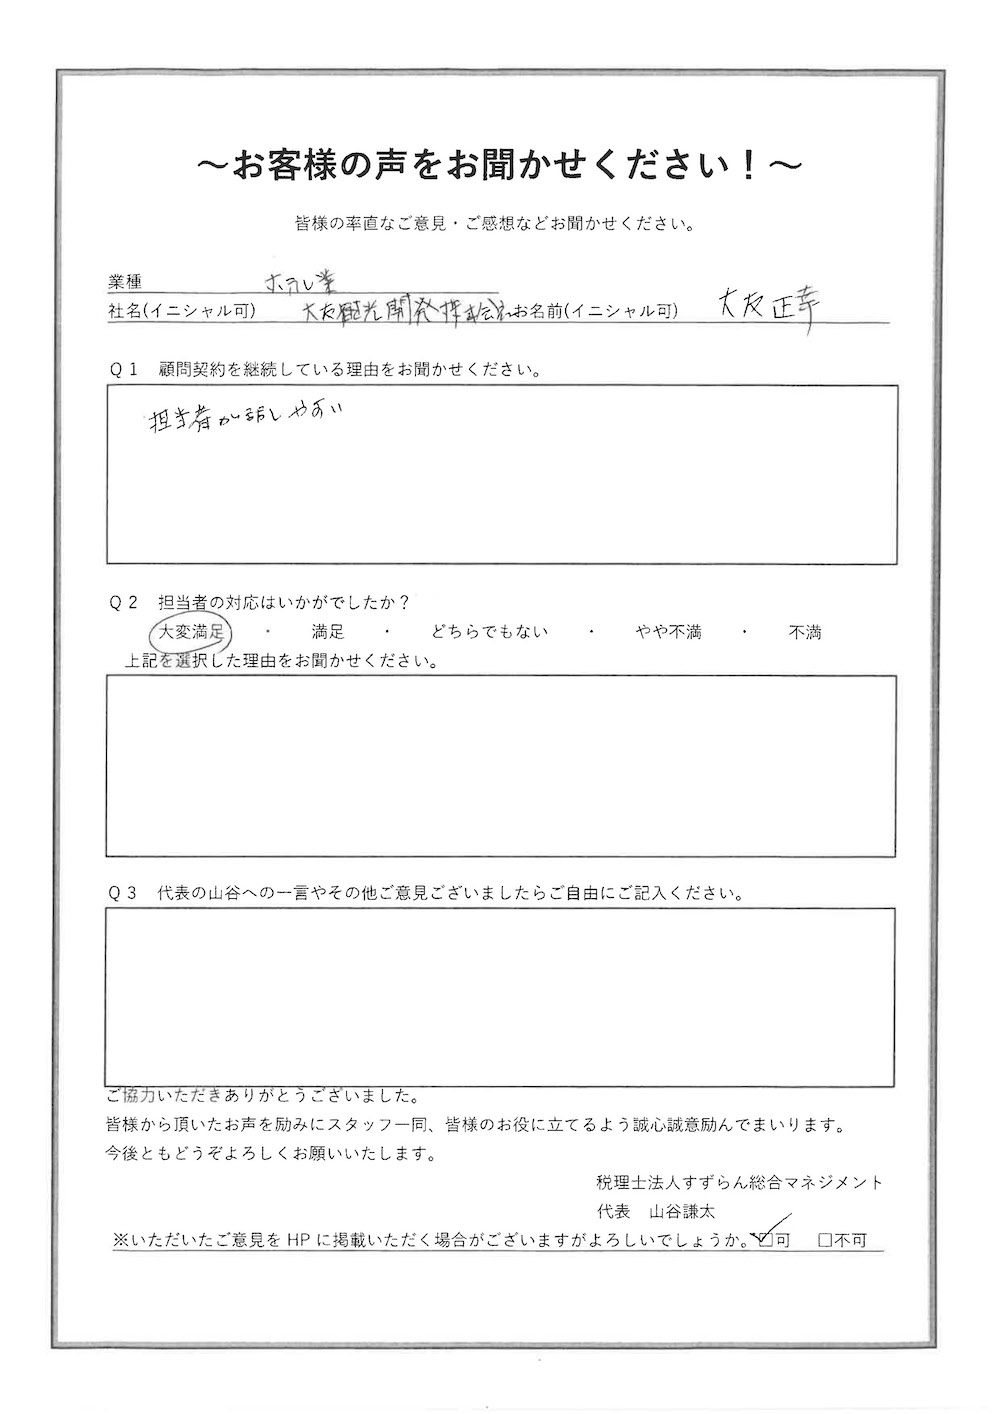 ～お客様の声をお聞かせください！～
皆様の率直なご意見・ご感想などお聞かせください。
業種 ホテル業
社名(イニシャル可) 大友観光開発株式会社 お名前(イニシャル可) 大友正幸
Ｑ１ 顧問契約を継続している理由をお聞かせください。
担当者が話しやすい
Ｑ２ 担当者の対応はいかがでしたか？
大変満足 ・ 満足 ・ どちらでもない ・ やや不満 ・ 不満
上記を選択した理由をお聞かせください。
Ｑ３ 代表の山谷への一言やその他ご意見ございましたらご自由にご記入ください。
ご協力いただきありがとうございました。
皆様から頂いたお声を励みにスタッフ一同、皆様のお役に立てるよう誠心誠意励んでまいります。
今後ともどうぞよろしくお願いいたします。
税理士法人すずらん総合マネジメント
代表 山谷謙太
※いただいたご意見をHPに掲載いただく場合がございますがよろしいでしょうか。☑可 □不可